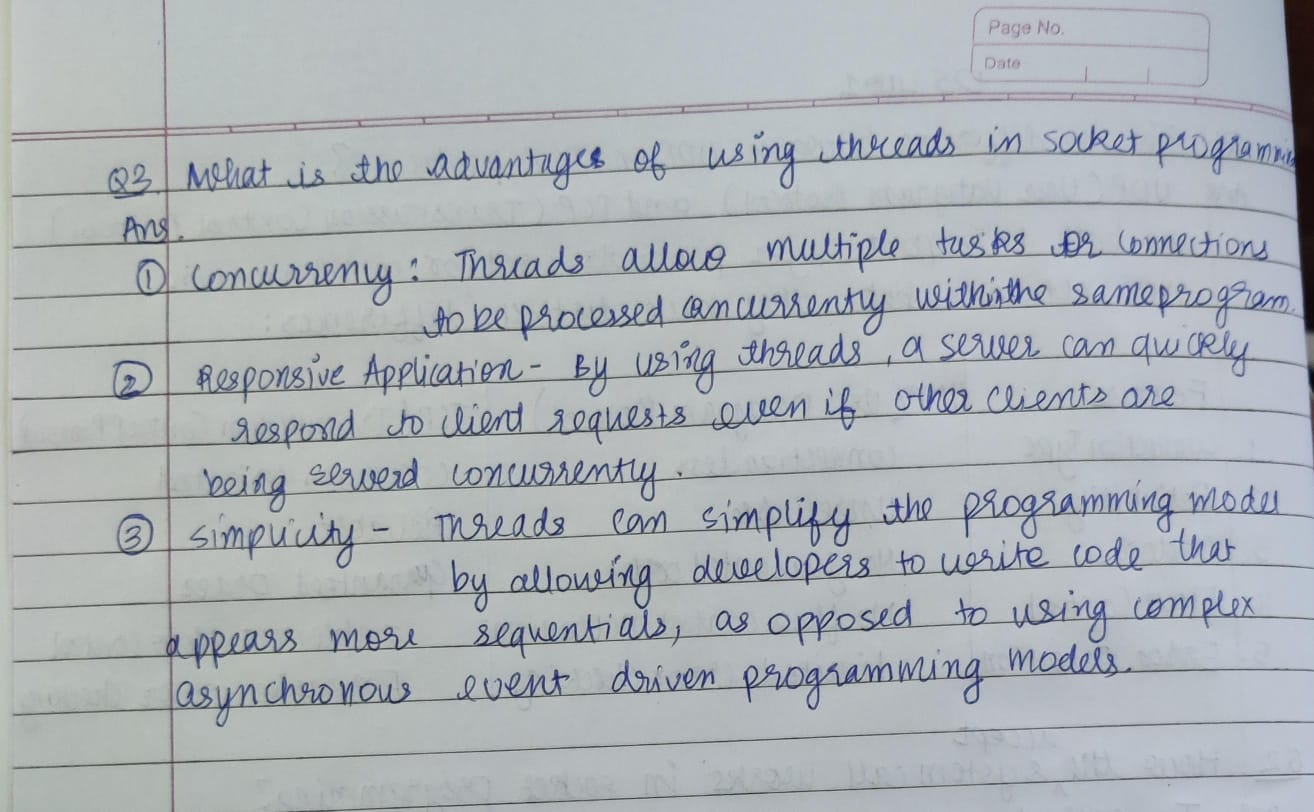 Page No.
Date
Q3. What is the advantages of using threads in socket programming
Ans.
① Concurrency : Threads allow multiple tasks or connections
to be processed concurrently within the same program.
② Responsive Application - By using threads, a server can quickly
respond to client requests even if other clients are
being serverd concurrently.
③ Simplicity - Threads can simplify the programming model
by allowing developers to write code that
appears more sequentials, as opposed to using complex
asynchronous event driven programming models.